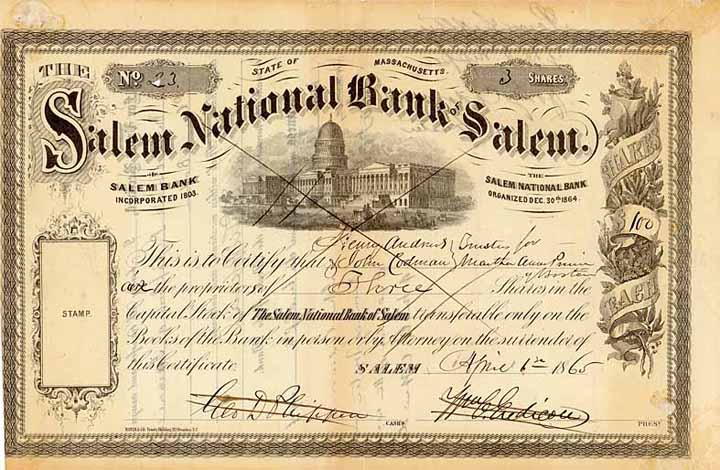 STATE OF MASSACHUSETTS.
THE
No. 23
3 SHARES
Salem National Bank of Salem.
SALEM BANK
INCORPORATED 1803.
THE
SALEM NATIONAL BANK
ORGANIZED DEC. 30th 1864.
SHARES
100
EACH
STAMP.
This is to Certify that Henry Andrews & John Codman Trustees for Martha Ann
of Boston
are the proprietors of Three Shares in the
Capital Stock of The Salem National Bank of Salem transferable only on the
Books of the Bank in person or by Attorney on the surrender of
this Certificate.
SALEM April 6 1865
Geo D Phippen
CASHR
PREST